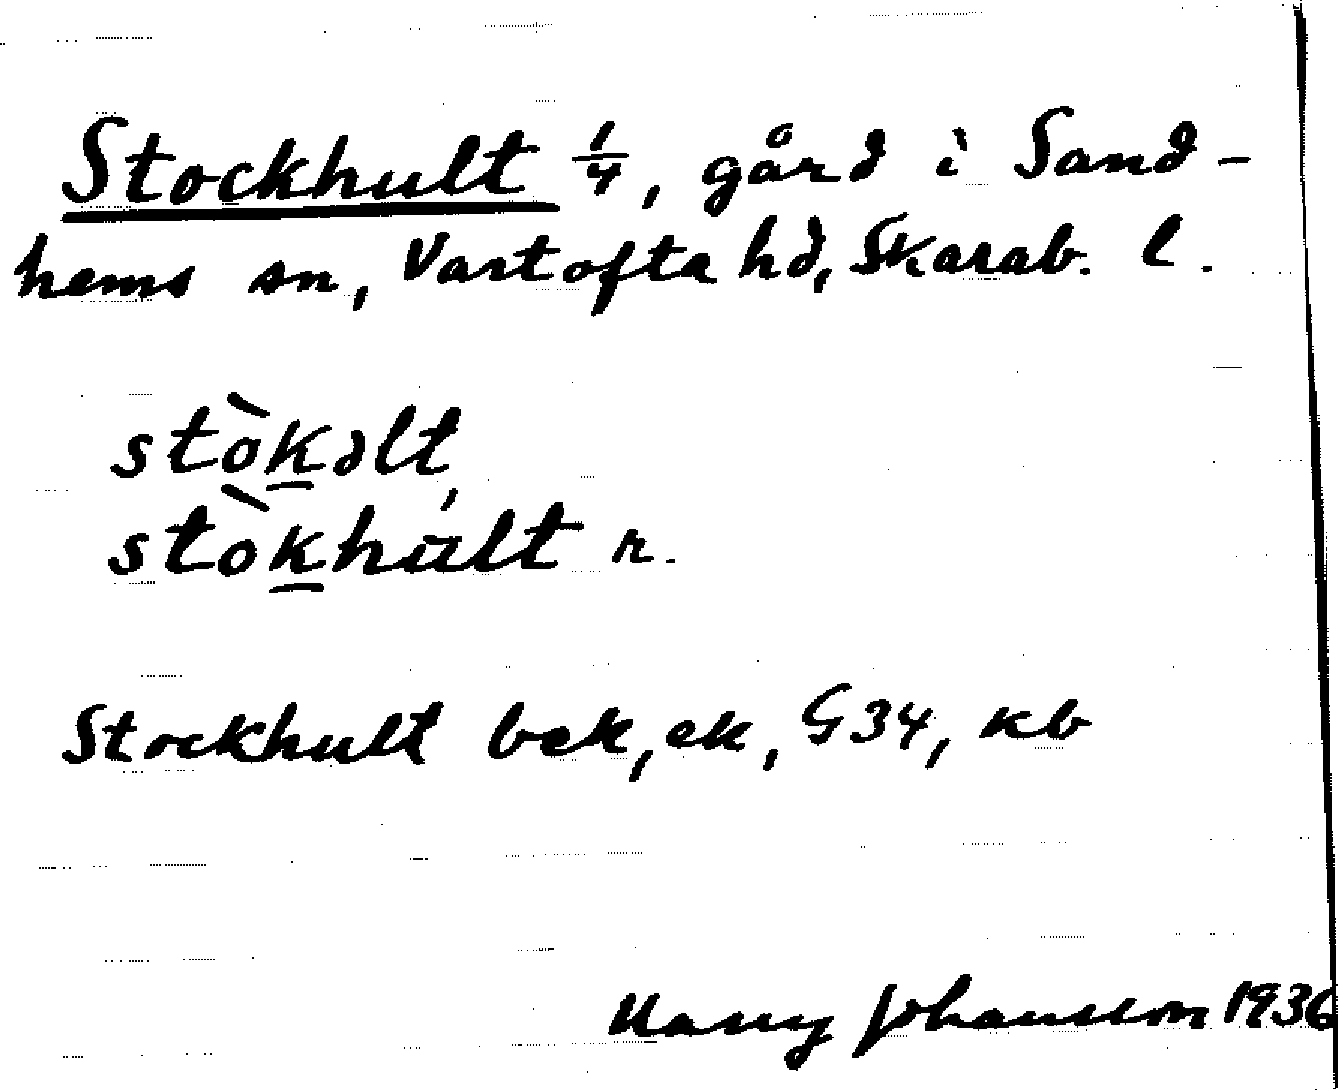 Stockhult 1/4, gård i Sand-
hems sn, Vartofta hd, Skarab. l.
stò̱kəlt,
stòḵhult r.
Stockhult bek, ek, G34, kb
Harry Johansson 1936